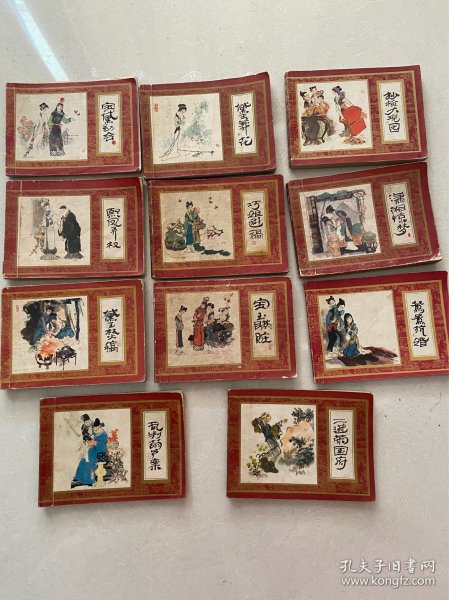 宝黛初会
黛玉葬花
抄检大观园
熙凤弄权
巧姐避祸
潇湘惊梦
黛玉焚稿
宝玉瞒赃
鸳鸯抗婚
乱判葫芦案
一进荣国府
孔夫子旧书网
www.kongfz.com